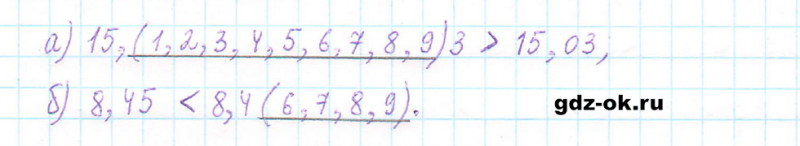 а) 15,(1,2,3,4,5,6,7,8,9)3 > 15,03;
б) 8,45 < 8,4(6,7,8,9).
gdz-ok.ru